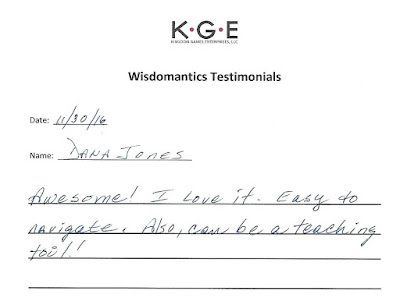 K•G•E
KINGDOM GAMES ENTERPRISES, LLC
Wisdomantics Testimonials
Date: 11/30/16
Name: Dana Jones
Awesome! I love it. Easy to
navigate. Also, can be a teaching
tool!